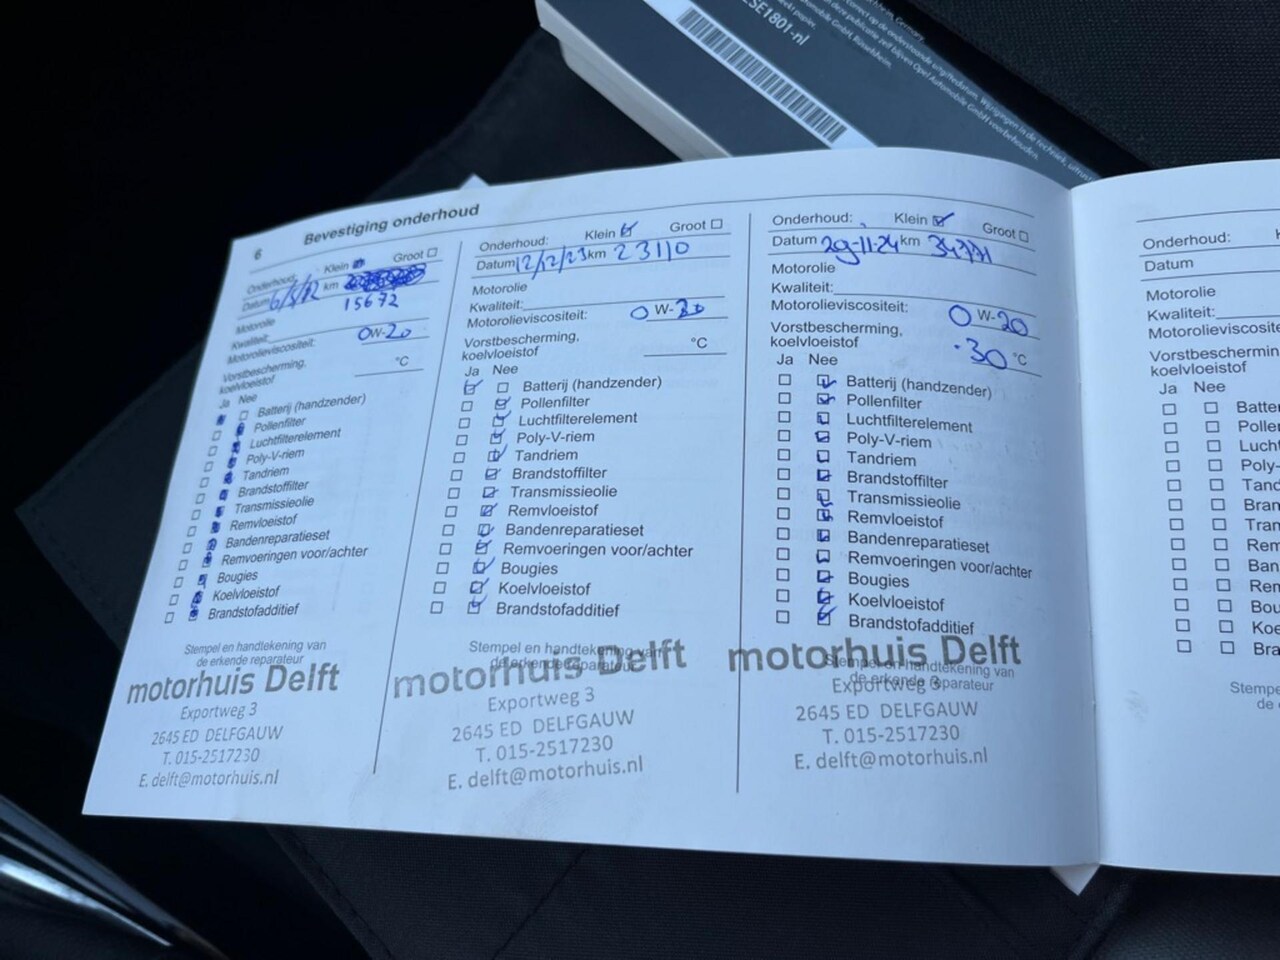 ESE1801-nl
6 Bevestiging onderhoud
Onderhoud: Klein Groot
Datum km
15672
Motorolie
Kwaliteit:
Motorolieviscositeit: 0W-20
Vorstbescherming, °C
koelvloeistof
Ja Nee
Batterij (handzender)
Pollenfilter
Luchtfilterelement
Poly-V-riem
Tandriem
Brandstoffilter
Transmissieolie
Remvloeistof
Bandenreparatieset
Remvoeringen voor/achter
Bougies
Koelvloeistof
Brandstofadditief
Stempel en handtekening van
de erkende reparateur
motorhuis Delft
Exportweg 3
2645 ED DELFGAUW
T. 015-2517230
E. delft@motorhuis.nl
Onderhoud: Klein Groot
Datum 12/12/23 km 23110
Motorolie
Kwaliteit:
Motorolieviscositeit: 0 W-20
Vorstbescherming, °C
koelvloeistof
Ja Nee
Batterij (handzender)
Pollenfilter
Luchtfilterelement
Poly-V-riem
Tandriem
Brandstoffilter
Transmissieolie
Remvloeistof
Bandenreparatieset
Remvoeringen voor/achter
Bougies
Koelvloeistof
Brandstofadditief
Stempel en handtekening van
de erkende reparateur
motorhuis Delft
Exportweg 3
2645 ED DELFGAUW
T. 015-2517230
E. delft@motorhuis.nl
Onderhoud: Klein Groot
Datum 29-11-24 km 34771
Motorolie
Kwaliteit:
Motorolieviscositeit: 0 W-20
Vorstbescherming,
koelvloeistof -30 °C
Ja Nee
Batterij (handzender)
Pollenfilter
Luchtfilterelement
Poly-V-riem
Tandriem
Brandstoffilter
Transmissieolie
Remvloeistof
Bandenreparatieset
Remvoeringen voor/achter
Bougies
Koelvloeistof
Brandstofadditief
Stempel en handtekening van
de erkende reparateur
motorhuis Delft
Exportweg 3
2645 ED DELFGAUW
T. 015-2517230
E. delft@motorhuis.nl
Onderhoud: K
Datum
Motorolie
Kwaliteit:
Motorolieviscosite
Vorstbeschermin
koelvloeistof
Ja Nee
Batte
Polle
Luch
Poly-
Tand
Bran
Tran
Rem
Ban
Rem
Bou
Koe
Bra
Stempe
de e